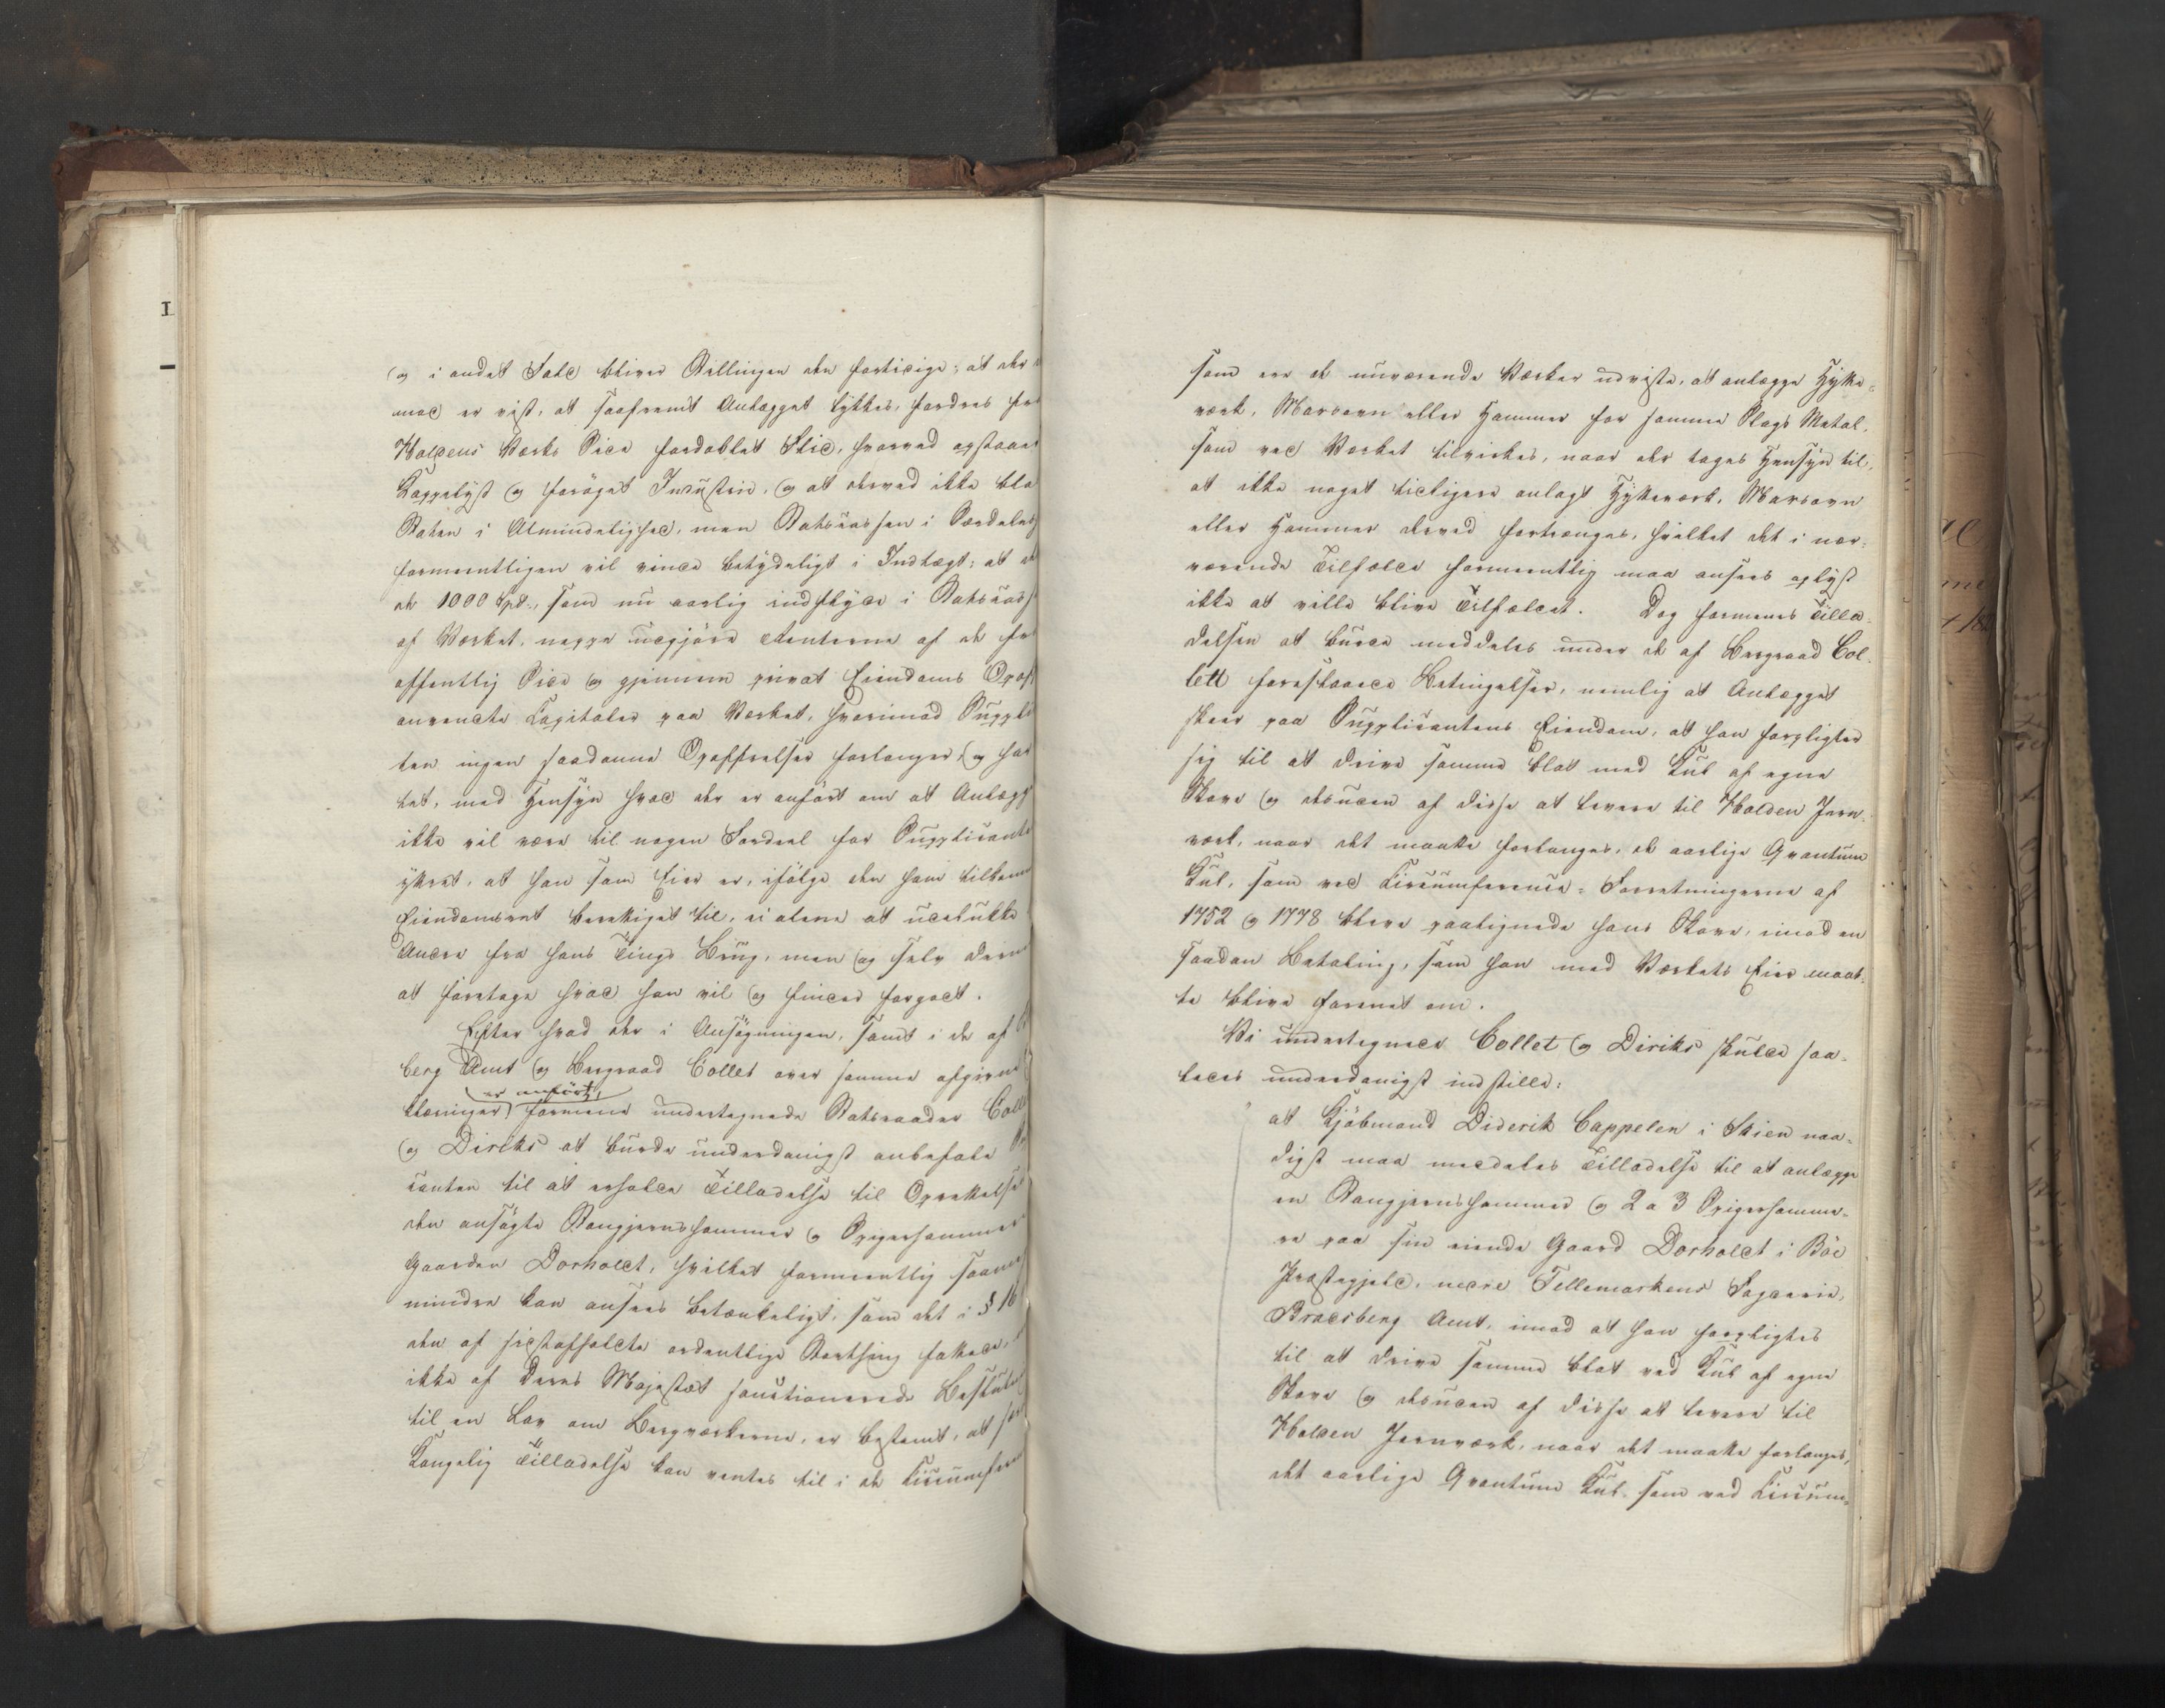 og i andet Fald bliver Stillingen den forrige; at der
mod er vist, at saafremt Anlægget lykkes, fordres fra
Holdens Værks Side fordoblet Flid, hvorved opstaaer
Kappelyst og forøget Industrie, og at derved ikke blot
Staten i Almindelighed, men Statskassen i Særdeles
formeentligen vil vinde betydeligt i Indtægt; at
de 1000 Spd., som nu aarlig indflyde i Statskass
af Værket, neppe udgjøre Renterne af de fra
offentlig Side og gjennem privat Eiendoms Opof
anvendte Capitaler paa Værket, hvorimod Suppli
ten ingen saadanne Opoffrelser forlanger, og har
tet, med Hensyn hvad der er anført om at Anlægg
ikke vil være til nogen Fordeel for Supplicante
yttret, at han som Eier er, ifølge den ham tilkom
Eiendomsret berettiget til, ei alene at udelukke
Andre fra hans Tings Brug, men og selv derm
at foretage hvad han vil og finder forgodt.
Efter hvad der i Ansøgningen, samt i de af
berg Amt og Bergraad Collet over samme afgivne
er anført,
klæringer formene undertegnede Statsraader Colle
og Diriks at burde underdanigst anbefale
canten til at erholde Tilladelse til Oprettelse
den ansøgte Stangjernshammer og Spigerhammer
Gaarden Dorholdt, hvilket formeentlig saamed
mindre kan ansees betænkeligt, som det i § 16
den af sidstafholdte ordentlige Storthing fattede,
ikke af Deres Majestæt sanctionerede Beslutn
til en Lov om Bergværkerne, er bestemt, at
Kongelig Tilladelse kan ventes til i de Circumfere
som ere de nuværende Værker udviste, at anlægge Hytte-
værk, Marovn eller Hammer for samme Slags Metal,
som ved Værket tilvirkes, naar der tages Hensyn til,
at ikke noget tidligere anlagt Hytteværk, Marovn
eller Hammer derved fortrænges, hvilket det i nær-
værende Tilfælde formeentlig maa ansees oplyst
ikke at ville blive Tilfældet. Dog formenes Tilla-
delsen at burde meddeles under de af Bergraad Col-
lett foreslaaede Betingelser, nemlig at Anlægget
skeer paa Supplicantens Eiendom, at han forpligter
sig til at drive samme blot med Kul af egne
Skove og desuden af disse at levere til Holden Jern-
værk, naar det maatte forlanges, de aarlige Qvantum
Kul, som ved Circumference-Forretningerne af
1752 og 1778 bleve paalignede hans Skove, imod en
saadan Betaling, som han med Værkets Eier maat-
te blive forenet om.
Vi undertegnede Collet og Diriks skulde saa-
ledes underdanigst indstille:
at Kjøbmand Diderik Cappelen i Skien naa-
digst maa meddeles Tilladelse til at anlægge
en Stangjernshammer og 2 a 3 Spigerhamme-
re paa sin eiende Gaard Dorholdt i Böe
Præstegjeld, nedre Tellemarkens Fogderie,
Bradsberg Amt, imod at han forpligtes
til at drive samme blot ved Kul af egne
Skove og desuden af disse at levere til
Holden Jernværk, naar det maatte forlanges,
det aarlige Qvantum Kul, som ved Circum-